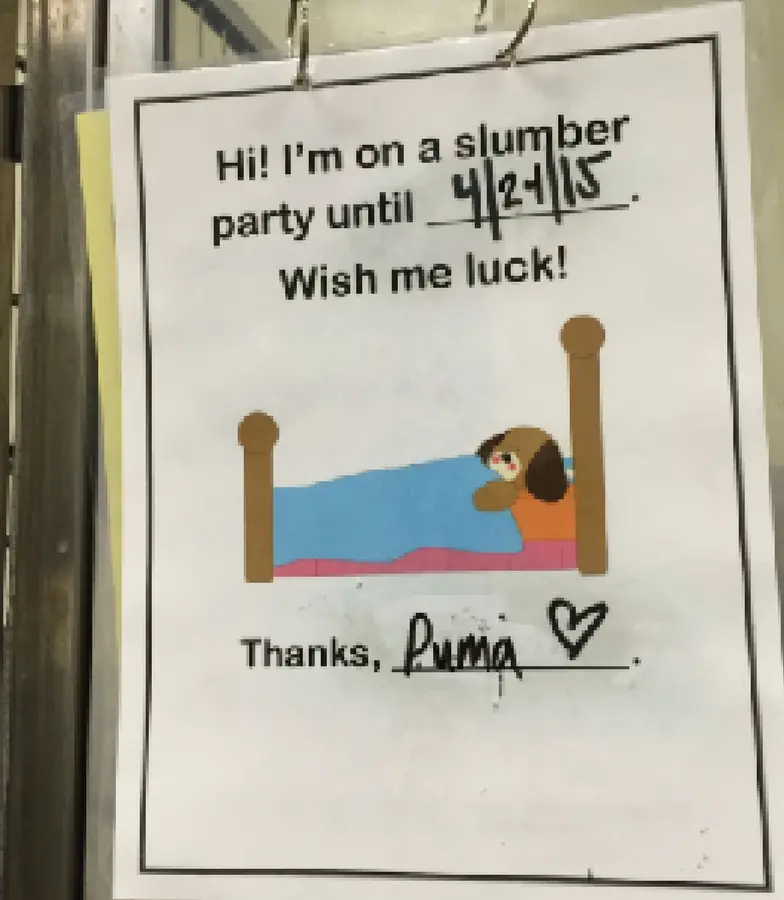 Hi! I'm on a slumber
party until 4/21/15.
Wish me luck!
Thanks, Puma ♡.